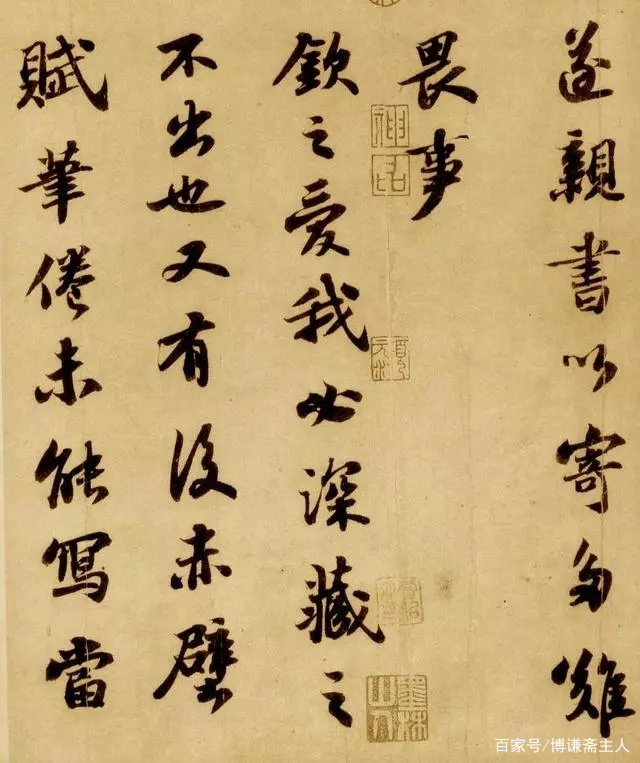 遂親書以寄多難
畏事
欽之愛我必深藏之
不出也又有後赤壁
賦筆倦未能寫當
神品
墨林山人
百家号/博谦斋主人